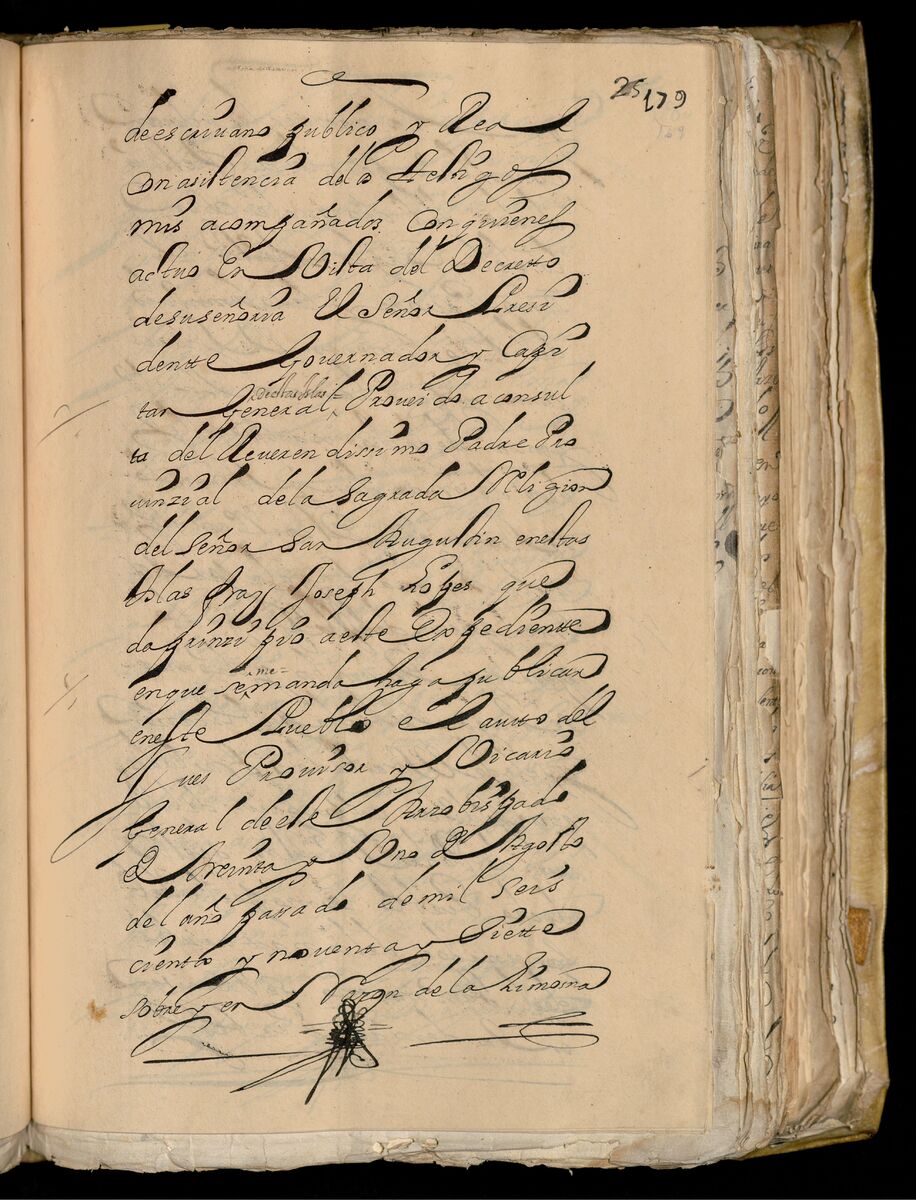 25 179
de escriuano publico y Real
Con asistencia de los testigos
mis acompañados Con quienes
actuo En Vista del Decretto
de su señoria El Señor Presi
dentte Governador y Capi
tan General destas Islas = Proueido a consul
ta del Reuerendissimo Padre Pro
uinzial de la Sagrada Religion
del Señor San Augustin en estas
Yslas fray Joseph Lopes que
da prinzipio a este Expedientte
en que se me = manda haga publicar
en este Pueblo el autto del
Jues Prouisor y Vicario
General de este Arzobispado
de treinta y Vno de Agosto
del año pasado de mil seis
ciento y nouenta y Siette
sobre y en Razon de la Limosna